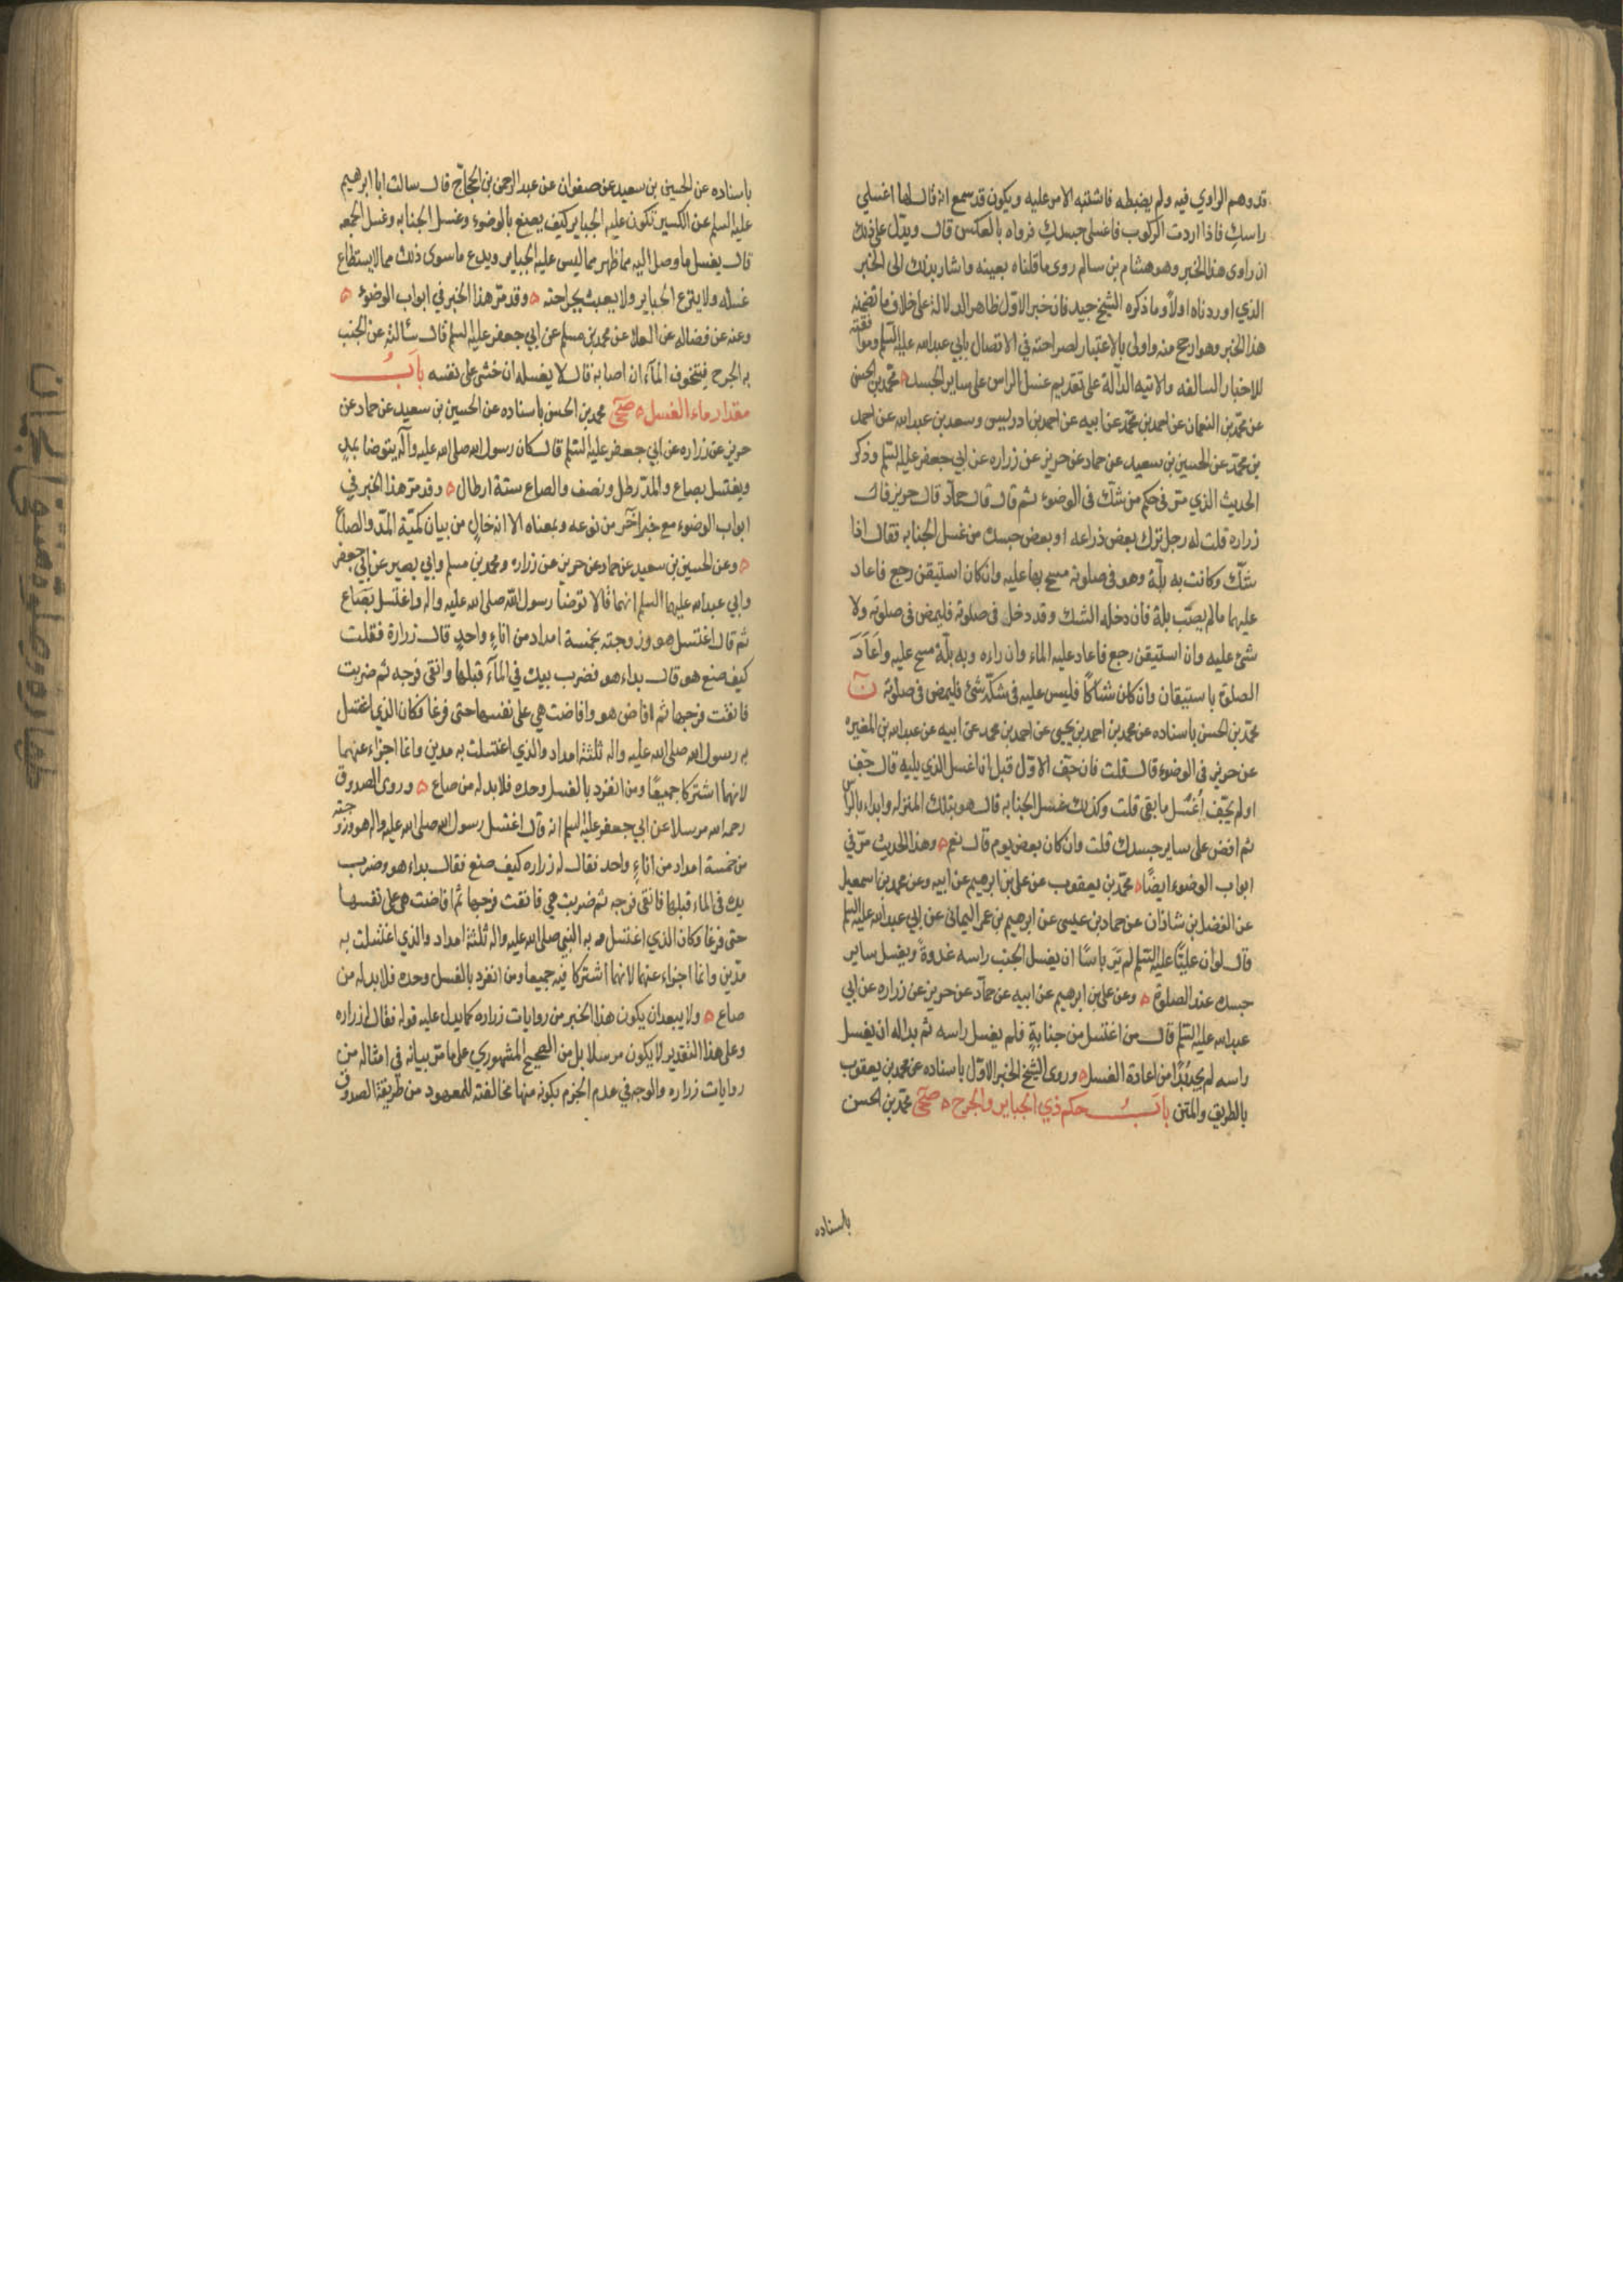 قد وهم الراوي فيه ولم يضبطه فاشتبه الامر عليه ويكون قد سمع انه قال لها اغسلي
راسك فاذا اردت الركوب فاغسلي جسدك فرواه بالعكس قال ويدل على ذلك
ان راوى هذا الخبر وهو هشام بن سالم روى ما قلناه بعينه واشار بذلك الى الخبر
الذي اوردناه اولاً وما ذكره الشيخ جيد فان خبر الاول ظاهر الدلالة على خلاف ما تضمنه
هذا الخبر وهو ارجح منه واولى بالاعتبار لصراحته في الاتصال بابي عبد الله عليه السلم وموافقته
للاخبار السالفه والاتيه الدآلة على تقديم غسل الراس على ساير الجسد ه محمد بن الحسن
عن محمد بن النعمان عن احمد بن محمد عن ابيه عن احمد بن ادريس وسعد بن عبد الله عن احمد
بن محمد عن الحسين بن سعيد عن حماد عن حريز عن زراره عن ابي جعفر عليه السلم وذكر
الحديث الذي مر في حكم من شك فى الوضوء ثم قال قال حماد قال حريز قال
زراره قلت له رجل ترك بعض ذراعه او بعض جسده من غسل الجنابه فقال اذا
شك وكانت به بلة وهو فى صلوته مسح بها عليه وان كان استيقن رجع فاعاد
عليها مالم يصب بلة فان دخله الشك وقد دخل فى صلوته فليمض فى صلوته ولا
شئ عليه وان استيقن رجع فاعاد عليه الماء وان راه وبه بلة مسح عليه واعاد
الصلوة باستيقان وان كان شاكا فليس عليه فى شكه شئ فليمض فى صلوته ن
محمد بن الحسن باسناده عن محمد بن احمد بن يحيى عن احمد بن محمد عن ابيه عن عبد الله بن المغيره
عن حريز فى الوضوء قال قلت فان جف الاول قبل ان اغسل الذي يليه قال جف
او لم يجف اغسل ما بقى قلت وكذلك غسل الجنابه قال هو بتلك المنزله وابداء بالراس
ثم افض على ساير جسدك قلت وان كان بعض يوم قال نعم ه وهذا الحديث مر في
ابواب الوضوء ايضًا ه محمد بن يعقوب عن على بن ابرهيم عن ابيه وعن محمد بن اسمعيل
عن الفضل بن شاذان عن حماد بن عيسى عن ابرهيم بن عمر اليمانى عن ابي عبد الله عليه السلم
قال لو ان عليًا عليه السلم لم ير باسًا ان يغسل الجنب راسه غدوة ويغسل ساير
جسده عند الصلوة ه وعن على بن ابرهيم عن ابيه عن حماد عن حريز عن زراره عن ابي
عبد الله عليه السلم قال من اغتسل من جنابة فلم يغسل راسه ثم بدا له ان يغسل
راسه لم يجد بدًا من اعادة الغسل ه وروى الشيخ الخبر الاول باسناده عن محمد بن يعقوب
بالطريق والمتن باب حكم ذي الجباير والجرح ه صحى محمد بن الحسن
باسناده
باسناده عن الحسين بن سعيد عن صفوان عن عبد الرحمن بن الحجاج قال سالت ابا ابرهيم
عليه السلم عن الكسير تكون عليه الجباير كيف يصنع بالوضوء وغسل الجنابه وغسل الجمعه
قال يغسل ما وصل اليه مما ظهر مما ليس عليه الجباير ويدع ما سوى ذلك مما لا يستطاع
غسله ولا ينزع الجباير ولا يعبث بجراحته ه وقد مر هذا الخبر في ابواب الوضوء ه
وعنه عن فضاله عن العلا عن محمد بن مسلم عن ابي جعفر عليه السلم قال سالته عن الجنب
به الجرح فيتخوف المآء ان اصابه قال لا يغسله ان خشى على نفسه باب
مقدار ماء الغسل ه صحى محمد بن الحسن باسناده عن الحسين بن سعيد عن حماد عن
حريز عن زراره عن ابي جعفر عليه السلم قال كان رسول الله صلى الله عليه وآله يتوضا بمد
ويغتسل بصاع والمد رطل ونصف والصاع ستة ارطال ه وقد مر هذا الخبر في
ابواب الوضوء مع خبر آخر من نوعه وبمعناه الا انه خال من بيان كمية المد والصاع
ه وعن الحسين بن سعيد عن حماد عن حريز عن زراره ومحمد بن مسلم وابي بصير عن ابي جعفر
وابي عبد الله عليهما السلم انهما قالا توضا رسول الله صلى الله عليه واله واغتسل بصاع
ثم قال اغتسل هو وزوجته بخمسة امداد من اناء واحد قال زرارة فقلت
كيف صنع هو قال بداء هو فضرب بيده في المآء قبلها وانقى فرجه ثم ضربت
فانقت فرجها ثم افاض هو وافاضت هي على نفسها حتى فرغا فكان الذي اغتسل
به رسول الله صلى الله عليه واله ثلثة امداد والذي اغتسلت به مدين وانما اجزاء عنهما
لانهما اشتركا جميعًا ومن انفرد بالغسل وحده فلا بد له من صاع ه وروى الصدوق
رحمه الله مرسلا عن ابي جعفر عليه السلم انه قال اغتسل رسول الله صلى الله عليه واله هو وزوجته
من خمسة امداد من اناء واحد فقال له زراره كيف صنع فقال بداء هو وضرب
يده فى الماء قبلها فانقى فرجه ثم ضربت هي فانقت فرجها ثم افاضت هي على نفسها
حتى فرغا وكان الذي اغتسل به النبي صلى الله عليه واله ثلثة امداد والذي اغتسلت به
مدين وانما اجزاء عنهما لانهما اشتركا فيه جميعا ومن انفرد بالغسل وحده فلا بد له من
صاع ه ولا يبعد ان يكون هذا الخبر من روايات زراره كما يدل عليه قوله فقال له زراره
وعلى هذا التقدير لا يكون مرسلا بل من الصحيح المشهوري على ما مر بيانه في امثاله من
روايات زراره والوجه في عدم الجزم بكونه منها مخالفته للمعهود من طريقة الصدوق